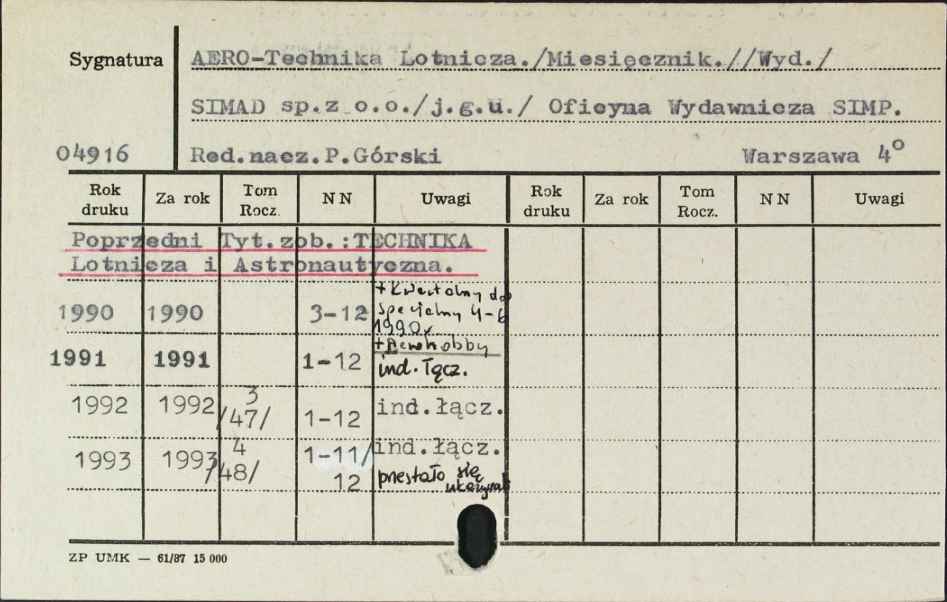 Sygnatura AERO-Technika Lotnicza./Miesięcznik.//Wyd./
SIMAD sp.z o.o./j.g.u./ Oficyna Wydawnicza SIMP.
04916 Red.nacz.P.Górski Warszawa 4°
Rok druku Za rok Tom Rocz. NN Uwagi Rok druku Za rok Tom Rocz. NN Uwagi
Poprzedni Tyt.zob.:TECHNIKA
Lotnicza i Astronautyczna.
+ Kwartalny
1990 1990 3-12 specjalny 4-6
1990r.
+Aerohobby
1991 1991 1-12 ind. łącz.
1992 1992 3 /47/ 1-12 ind.łącz.
1993 1993 4 /48/ 1-11/ ind.łącz.
12 przestało się
ukazywać
ZP UMK — 61/87 15 000